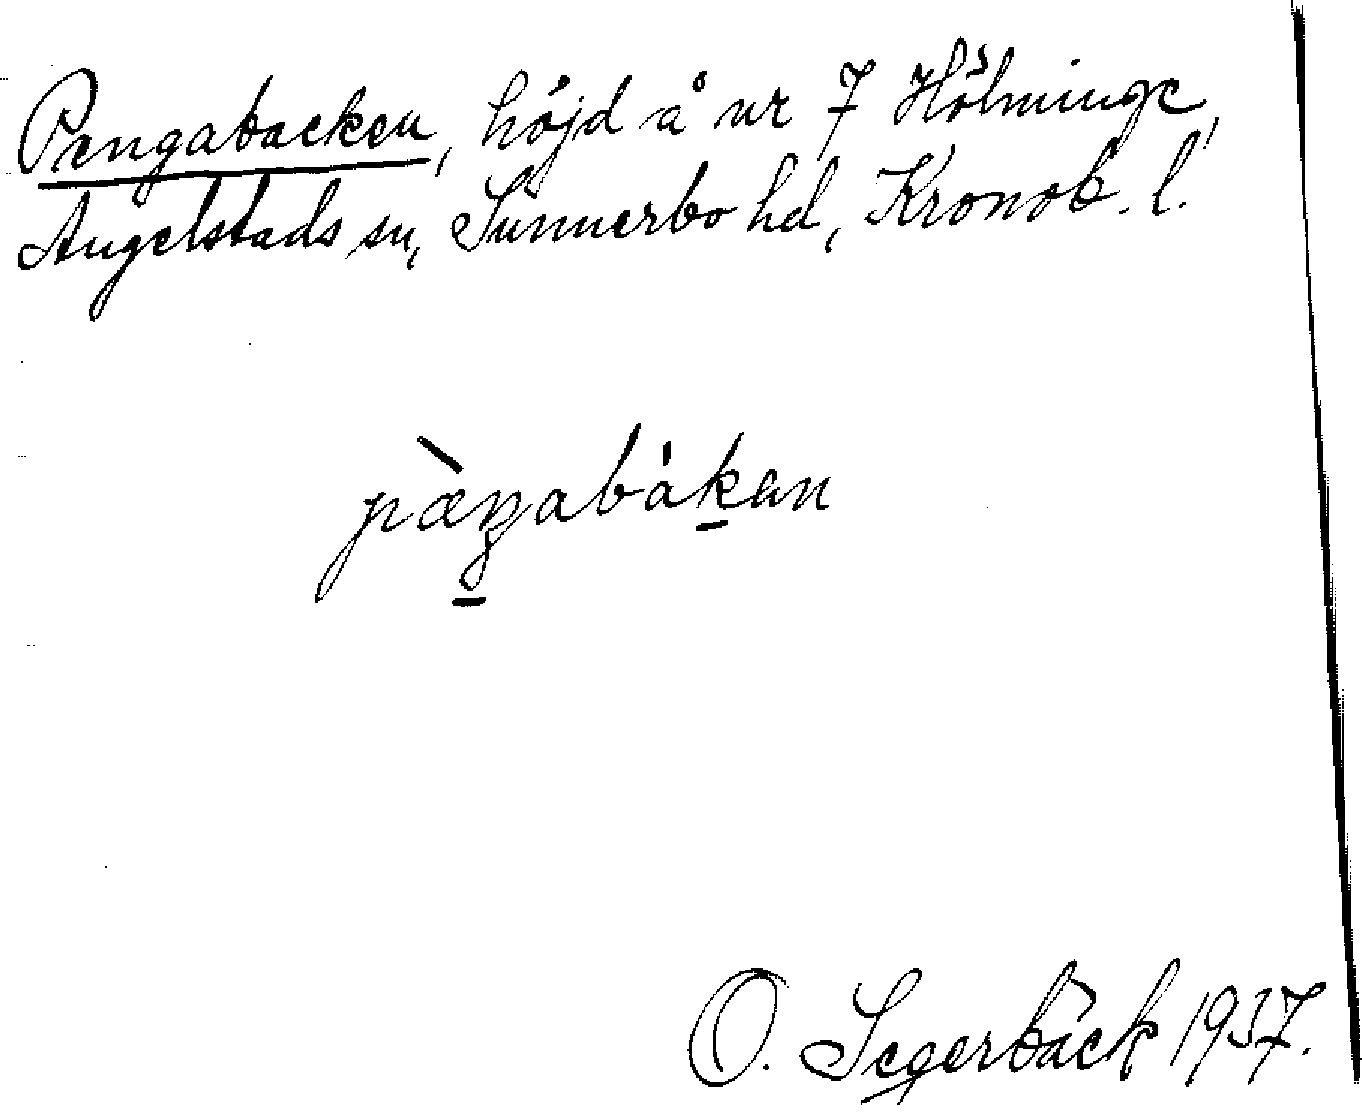 Pengabacken, höjd å nr 7 Hölminge,
Angelstads sn, Sunnerbo hd, Kronob. l.
pæ̀ŋabákan
O. Segerbäck 1937.